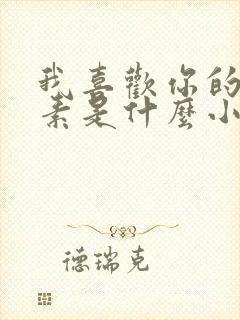 我喜歡你的
素是什麼小
德瑞克